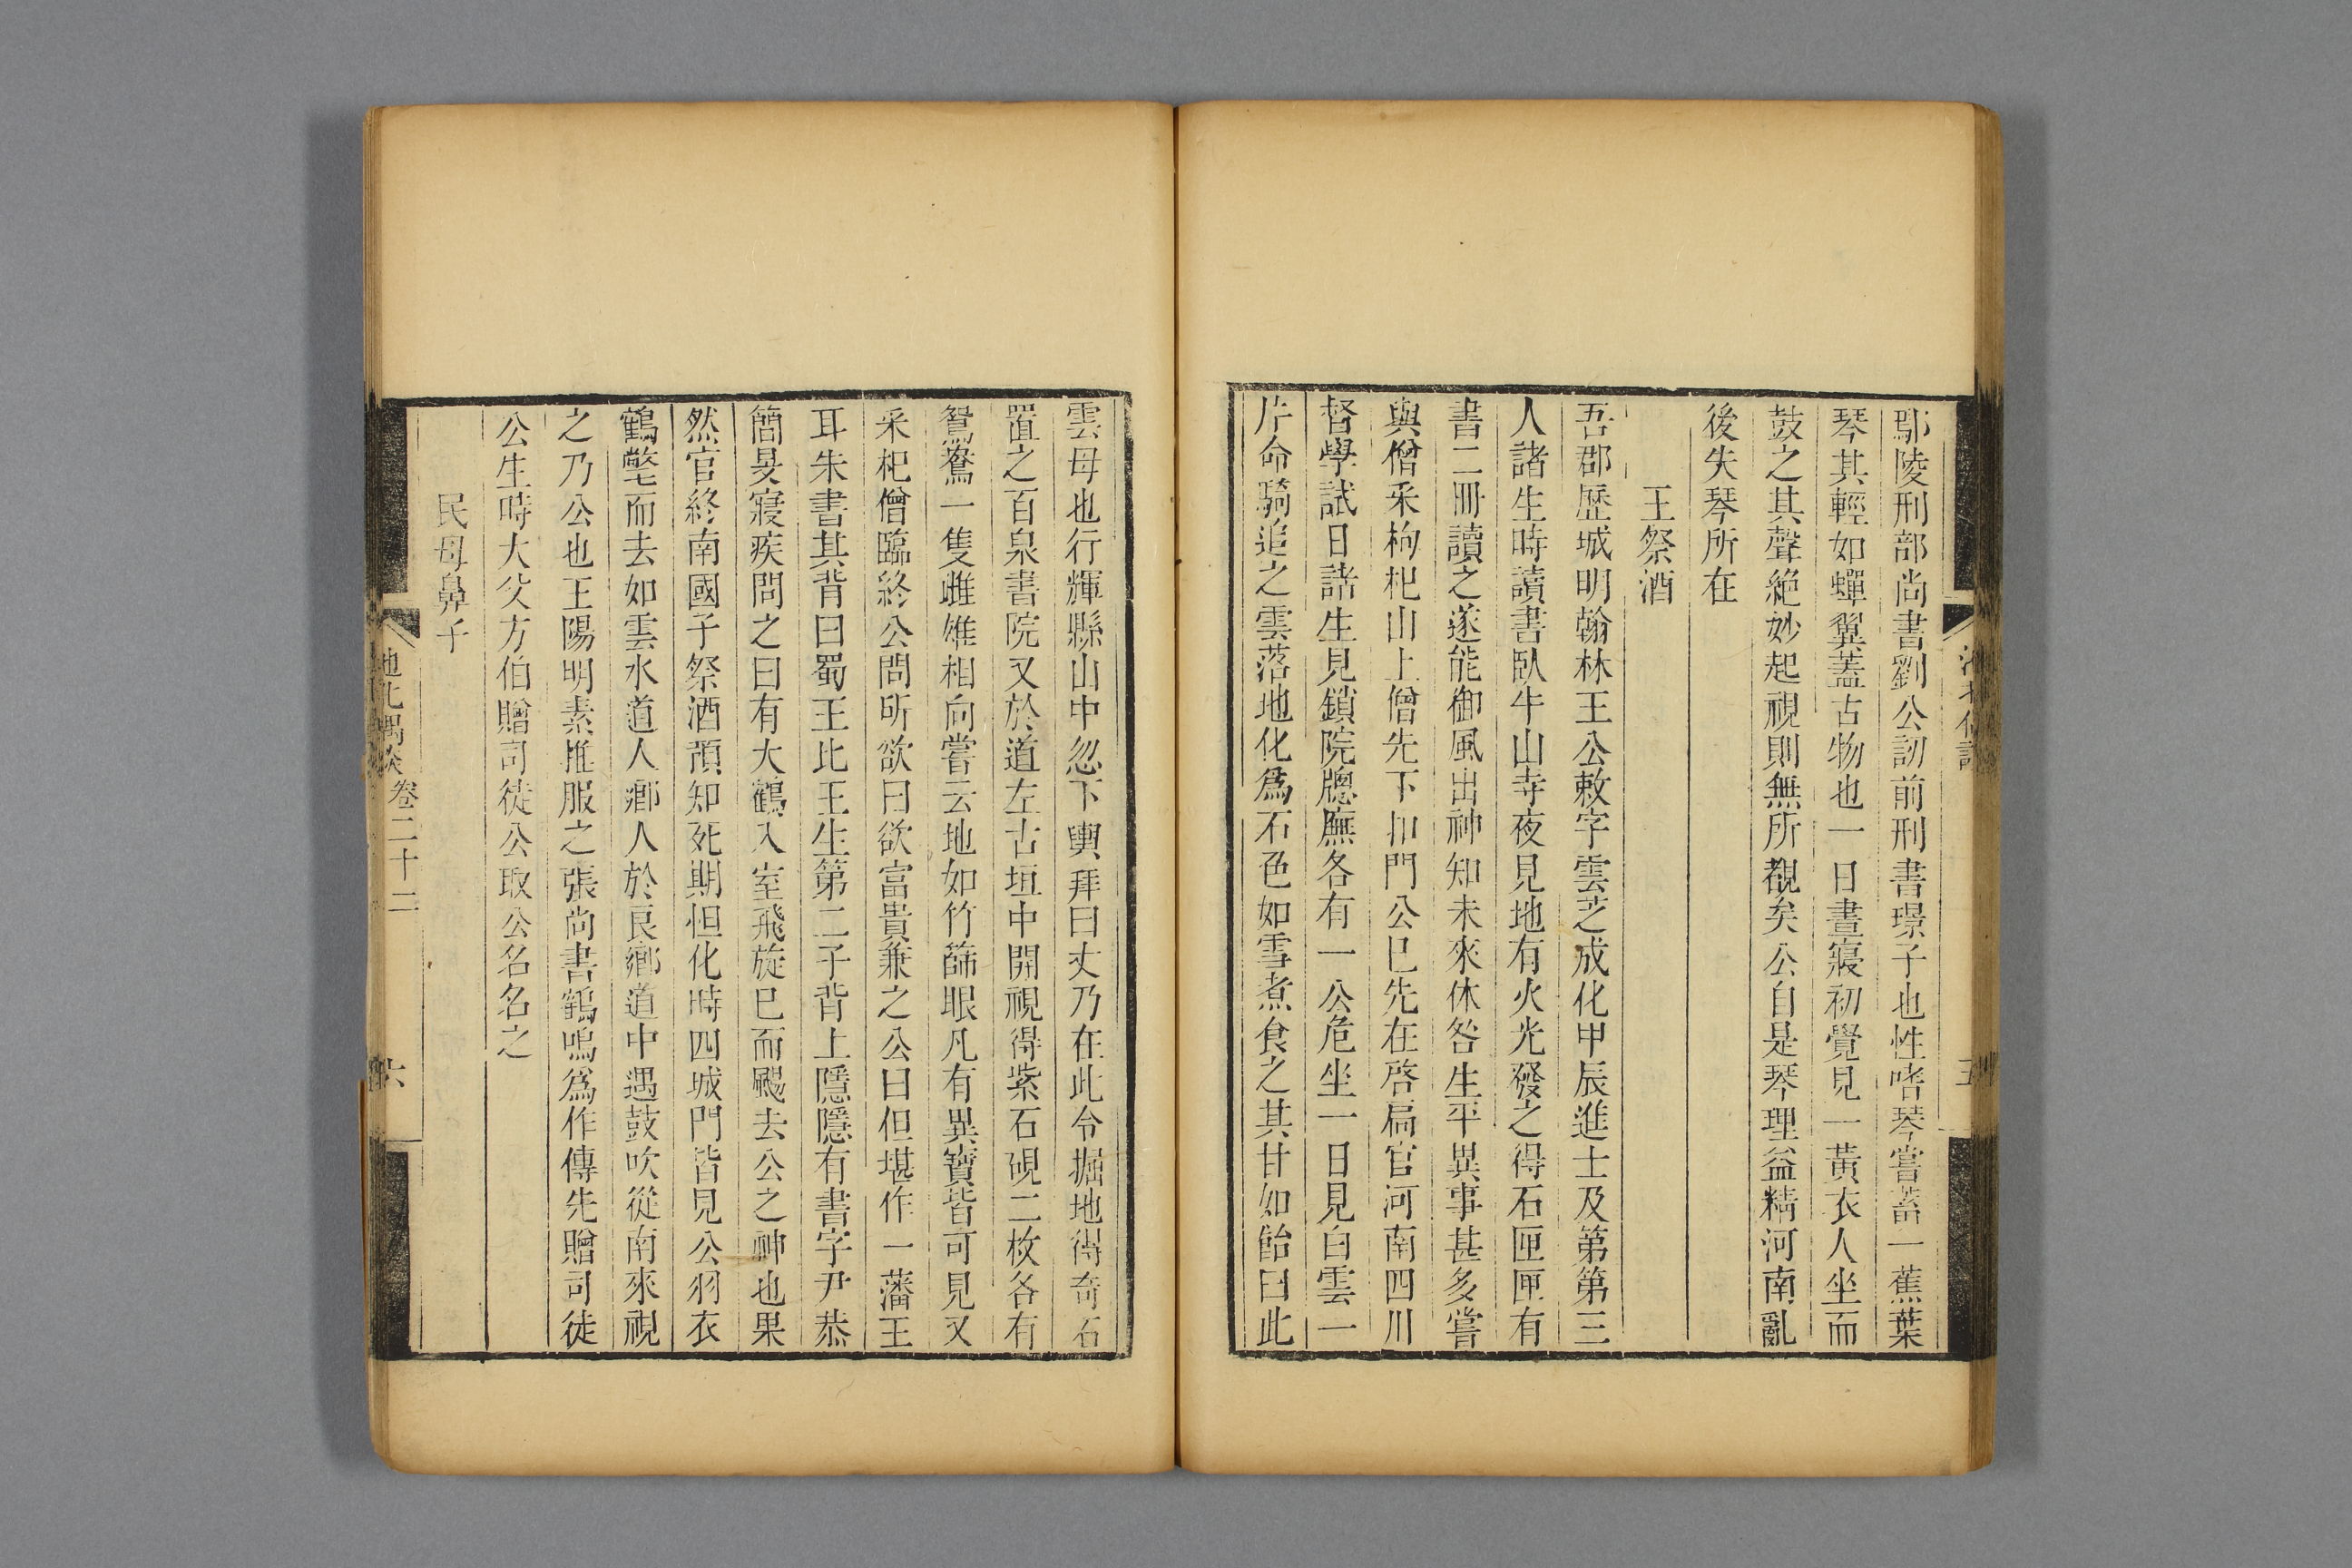 鄢陵刑部尚書劉公訒前刑書璟子也性嗜琴嘗蓄一蕉葉
琴其輕如蟬翼蓋古物也一日晝寢初覺見一黃衣人坐而
鼓之其聲絶妙起視則無所覩矣公自是琴理益精河南亂
後失琴所在
王祭酒
吾郡歷城明翰林王公敕字雲芝成化甲辰進士及第第三
人諸生時讀書臥牛山寺夜見地有火光發之得石匣匣有
書二冊讀之遂能御風出神知未來休咎生平異事甚多嘗
與僧采枸杞山上僧先下扣門公已先在啓扃官河南四川
督學試日諸生見鎖院牕廡各有一公危坐一日見白雲一
片命騎追之雲落地化爲石色如雪煮食之其甘如飴曰此
雲母也行輝縣山中忽下輿拜曰丈乃在此令掘地得奇石
置之百泉書院又於道左古垣中開視得紫石硯二枚各有
鴛鴦一隻雌雄相向嘗云地如竹篩眼凡有異寶皆可見又
采杞僧臨終公問所欲曰欲富貴兼之公曰但堪作一藩王
耳朱書其背曰蜀王比王生第二子背上隱隱有書字尹恭
簡旻寢疾問之曰有大鶴入室飛旋已而颺去公之神也果
然官終南國子祭酒預知死期怛化時四城門皆見公羽衣
鶴氅而去如雲水道人鄉人於良鄉道中遇鼓吹從南來視
之乃公也王陽明素推服之張尚書鶴鳴爲作傳先贈司徒
公生時大父方伯贈司徒公取公名名之
民母鼻子
池北偶談 卷二十二 六